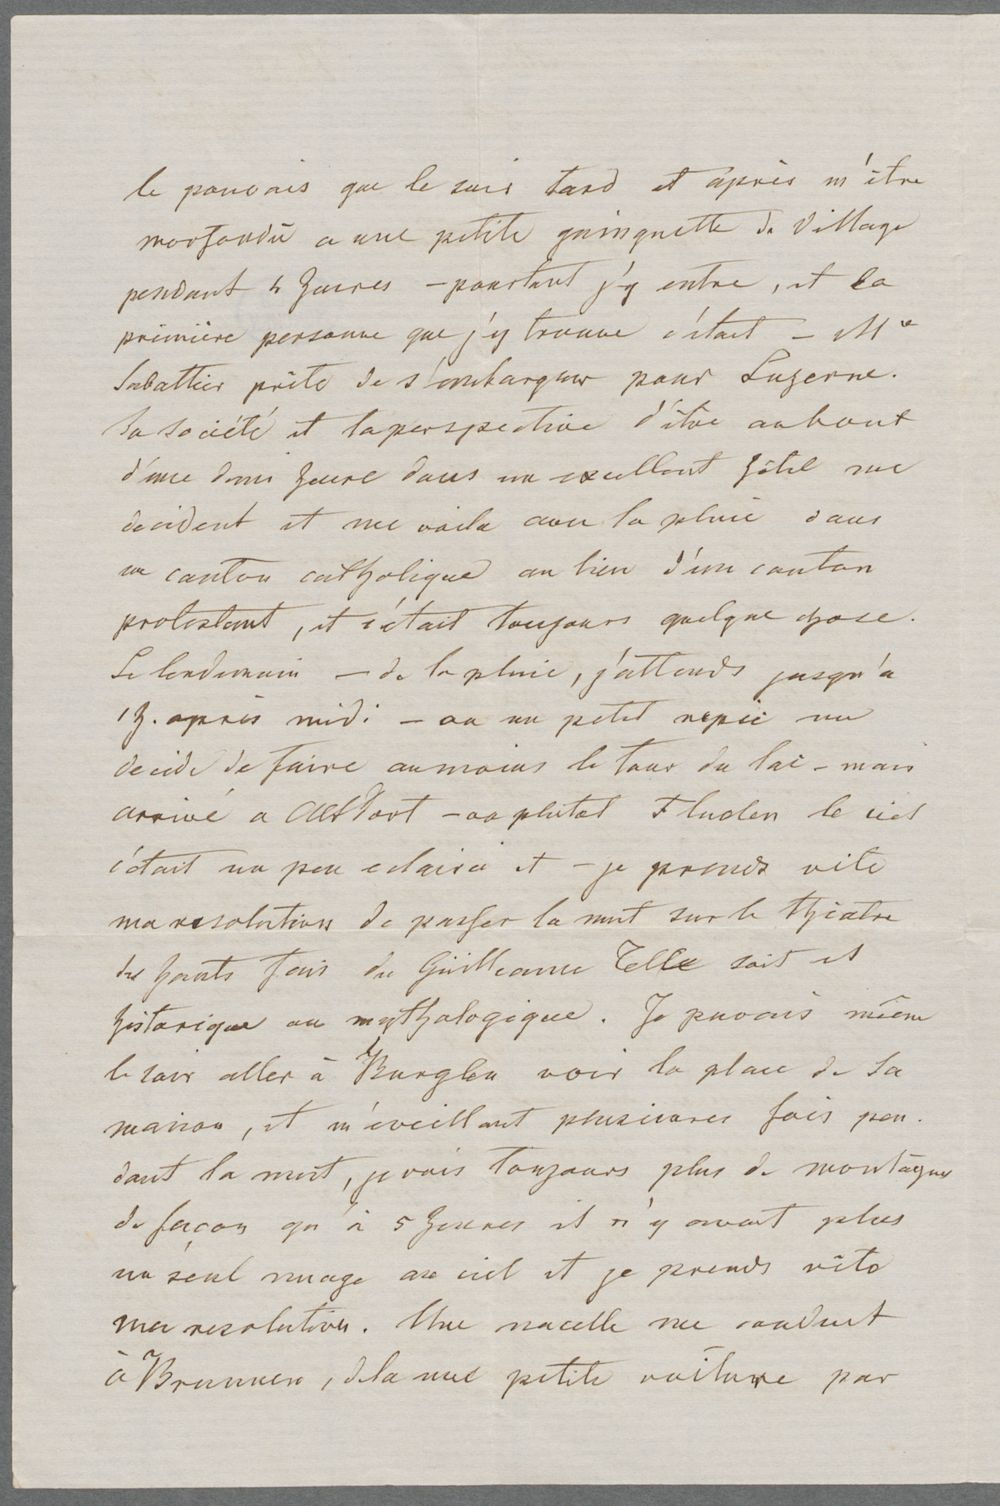 le pouvais que le soir tard et après m'être
morfondu a une petite guinguette de Village
pendant 4 heures – pourtant j'y entre, et la
première personne que j'y trouve c'était – Mle
Sabattier prête de s'embarquer pour Luzerne.
Sa société et la perspective d'être au bout
d'une demi heure dans un excellent hôtel me
decident et me voila avec la pluie dans
un canton catholique au lieu d'un canton
protestant, et c'était toujours quelque chose.
Le lendemain – de la pluie, j'attends jusqu'a
1h. après midi – ou un petit repic me
decide de faire au moins le tour du lac – mais
arrivé a Altdort – ou plutot Fluolen le ciel
c'etait un peu eclairci et – je prends vite
ma resolution de passer la nuit sur le théatre
des hauts fais du Guilleaume Telle soit il
historique ou mythologique. Je puvais même
le soir aller à Burglen voir la place de sa
maison, et m'eveillant plusieures fois pen-
dant la nuit, je vois toujours plus de montagnes
de façon qu'à 5 heures il n'y avait plus
un seul nuage au ciel et je prends vite
ma resolution. Une nacelle me conduit
à Brunnen, de la une petite voiture par